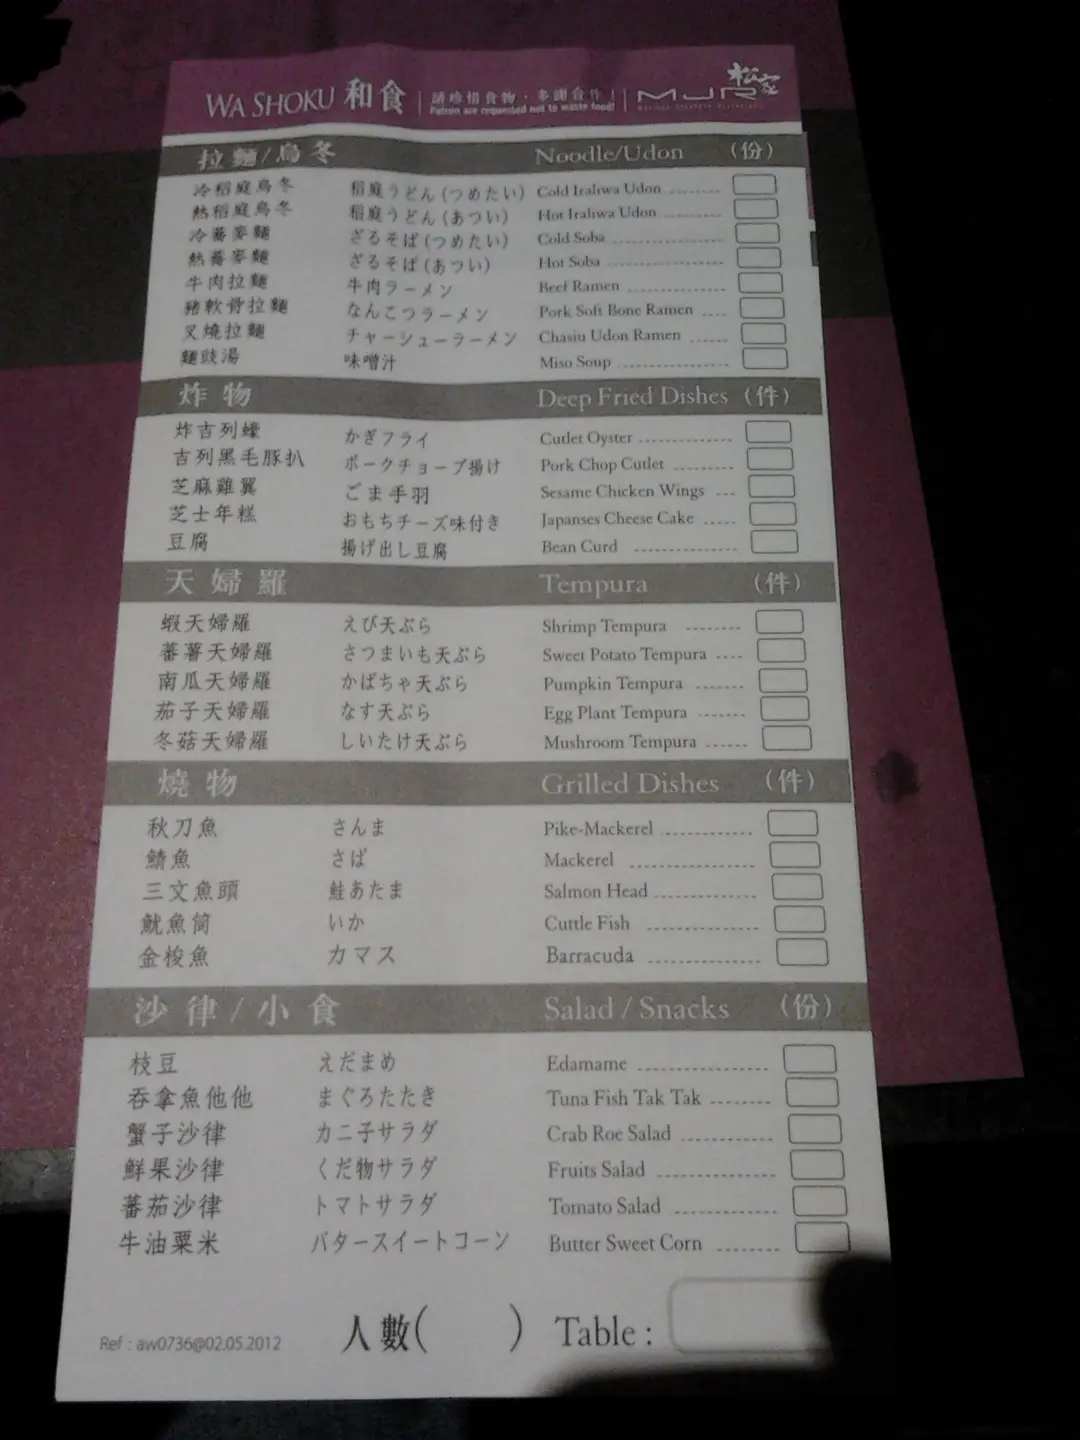 WA SHOKU 和食 請珍惜食物,多謝合作! Patron are requested not to waste food! 松家 MJR
拉麵/烏冬 Noodle/Udon (份)
冷稻庭烏冬 稻庭うどん(つめたい) Cold Iraliwa Udon
熱稻庭烏冬 稻庭うどん(あつい) Hot Iraliwa Udon
冷蕎麥麵 ざるそば(つめたい) Cold Soba
熱蕎麥麵 ざるそば(あつい) Hot Soba
牛肉拉麵 牛肉ラーメン Beef Ramen
豬軟骨拉麵 なんこつラーメン Pork Soft Bone Ramen
叉燒拉麵 チャーシューラーメン Chasiu Udon Ramen
麵豉湯 味噌汁 Miso Soup
炸物 Deep Fried Dishes (件)
炸吉列蠔 かぎフライ Cutlet Oyster
吉列黑毛豚扒 ポークチョープ揚げ Pork Chop Cutlet
芝麻雞翼 ごま手羽 Sesame Chicken Wings
芝士年糕 おもちチーズ味付き Japanses Cheese Cake
豆腐 揚げ出し豆腐 Bean Curd
天婦羅 Tempura (件)
蝦天婦羅 えび天ぷら Shrimp Tempura
蕃薯天婦羅 さつまいも天ぷら Sweet Potato Tempura
南瓜天婦羅 かぱちゃ天ぷら Pumpkin Tempura
茄子天婦羅 なす天ぷら Egg Plant Tempura
冬菇天婦羅 しいたけ天ぷら Mushroom Tempura
燒物 Grilled Dishes (件)
秋刀魚 さんま Pike-Mackerel
鯖魚 さば Mackerel
三文魚頭 鮭あたま Salmon Head
魷魚筒 いか Cuttle Fish
金梭魚 カマス Barracuda
沙律/小食 Salad / Snacks (份)
枝豆 えだまめ Edamame
吞拿魚他他 まぐろたたき Tuna Fish Tak Tak
蟹子沙律 カニ子サラダ Crab Roe Salad
鮮果沙律 くだ物サラダ Fruits Salad
蕃茄沙律 トマトサラダ Tomato Salad
牛油粟米 バタースイートコーン Butter Sweet Corn
Ref : aw0736@02.05.2012 人數( ) Table :